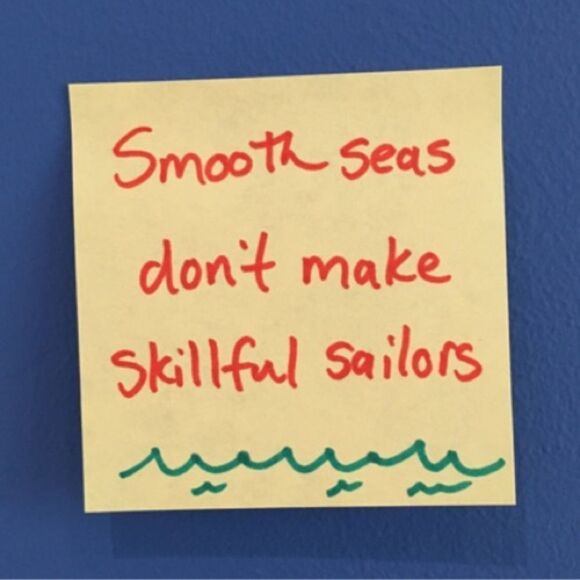 Smooth seas
don't make
skillful sailors